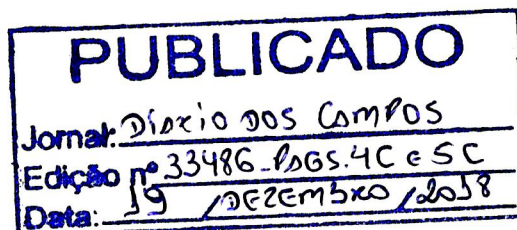 PUBLICADO
Jornal: Diario dos Campos
Edição nº 33486-PAGS.4C e 5C
Data: 19 /DEZEMBRO /2018